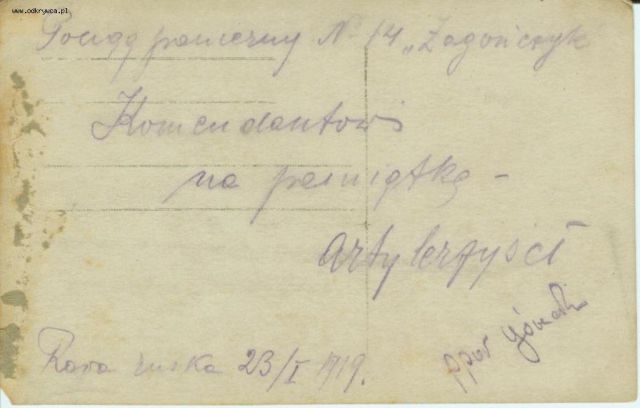 www.odkrywca.pl
Pociąg pancerny N 14 „Zagończyk
Komendantowi
na pamiątkę –
artylerzyści
Rava ruska 23/I 1919.
ppor